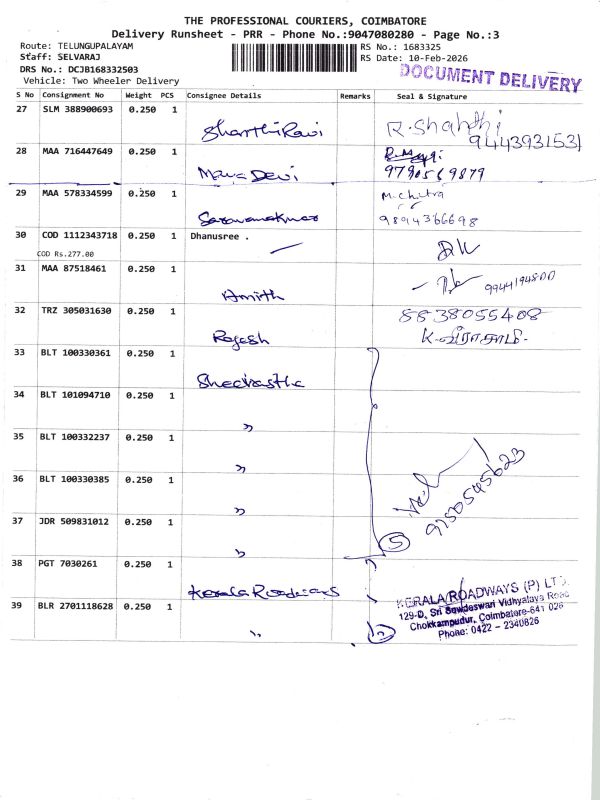 THE PROFESSIONAL COURIERS, COIMBATORE
Delivery Runsheet - PRR - Phone No.:9047080280 - Page No.:3
Route: TELUNGUPALAYAM
RS No.: 1683325
Staff: SELVARAJ
RS Date: 10-Feb-2026
DRS No.: DCJB168332503
Vehicle: Two Wheeler Delivery
DOCUMENT DELIVERY
S No Consignment No Weight PCS Consignee Details Remarks Seal & Signature
27 SLM 388900693 0.250 1 Sharthi Ravi R. Shahdhi
9443931531
28 MAA 716447649 0.250 1 Mana Devi
9790569879
29 MAA 578334599 0.250 1 Saravanakumar M. Chitra
9894366698
30 COD 1112343718 0.250 1 Dhanusree .
COD Rs.277.00
31 MAA 87518461 0.250 1 Amirth 9944194800
32 TRZ 305031630 0.250 1 Rajesh 8838055408
33 BLT 100330361 0.250 1
34 BLT 101094710 0.250 1 "
35 BLT 100332237 0.250 1 "
36 BLT 100330385 0.250 1 "
9750545623
37 JDR 509831012 0.250 1 "
5
38 PGT 7030261 0.250 1 Kerala Roadways
39 BLR 2701118628 0.250 1 "
KERALA ROADWAYS (P) LTD.
129-D, Sri Sowdeswari Vidhyalaya Road
Chokkampudur, Coimbatore-641 026
Phone: 0422 - 2340826